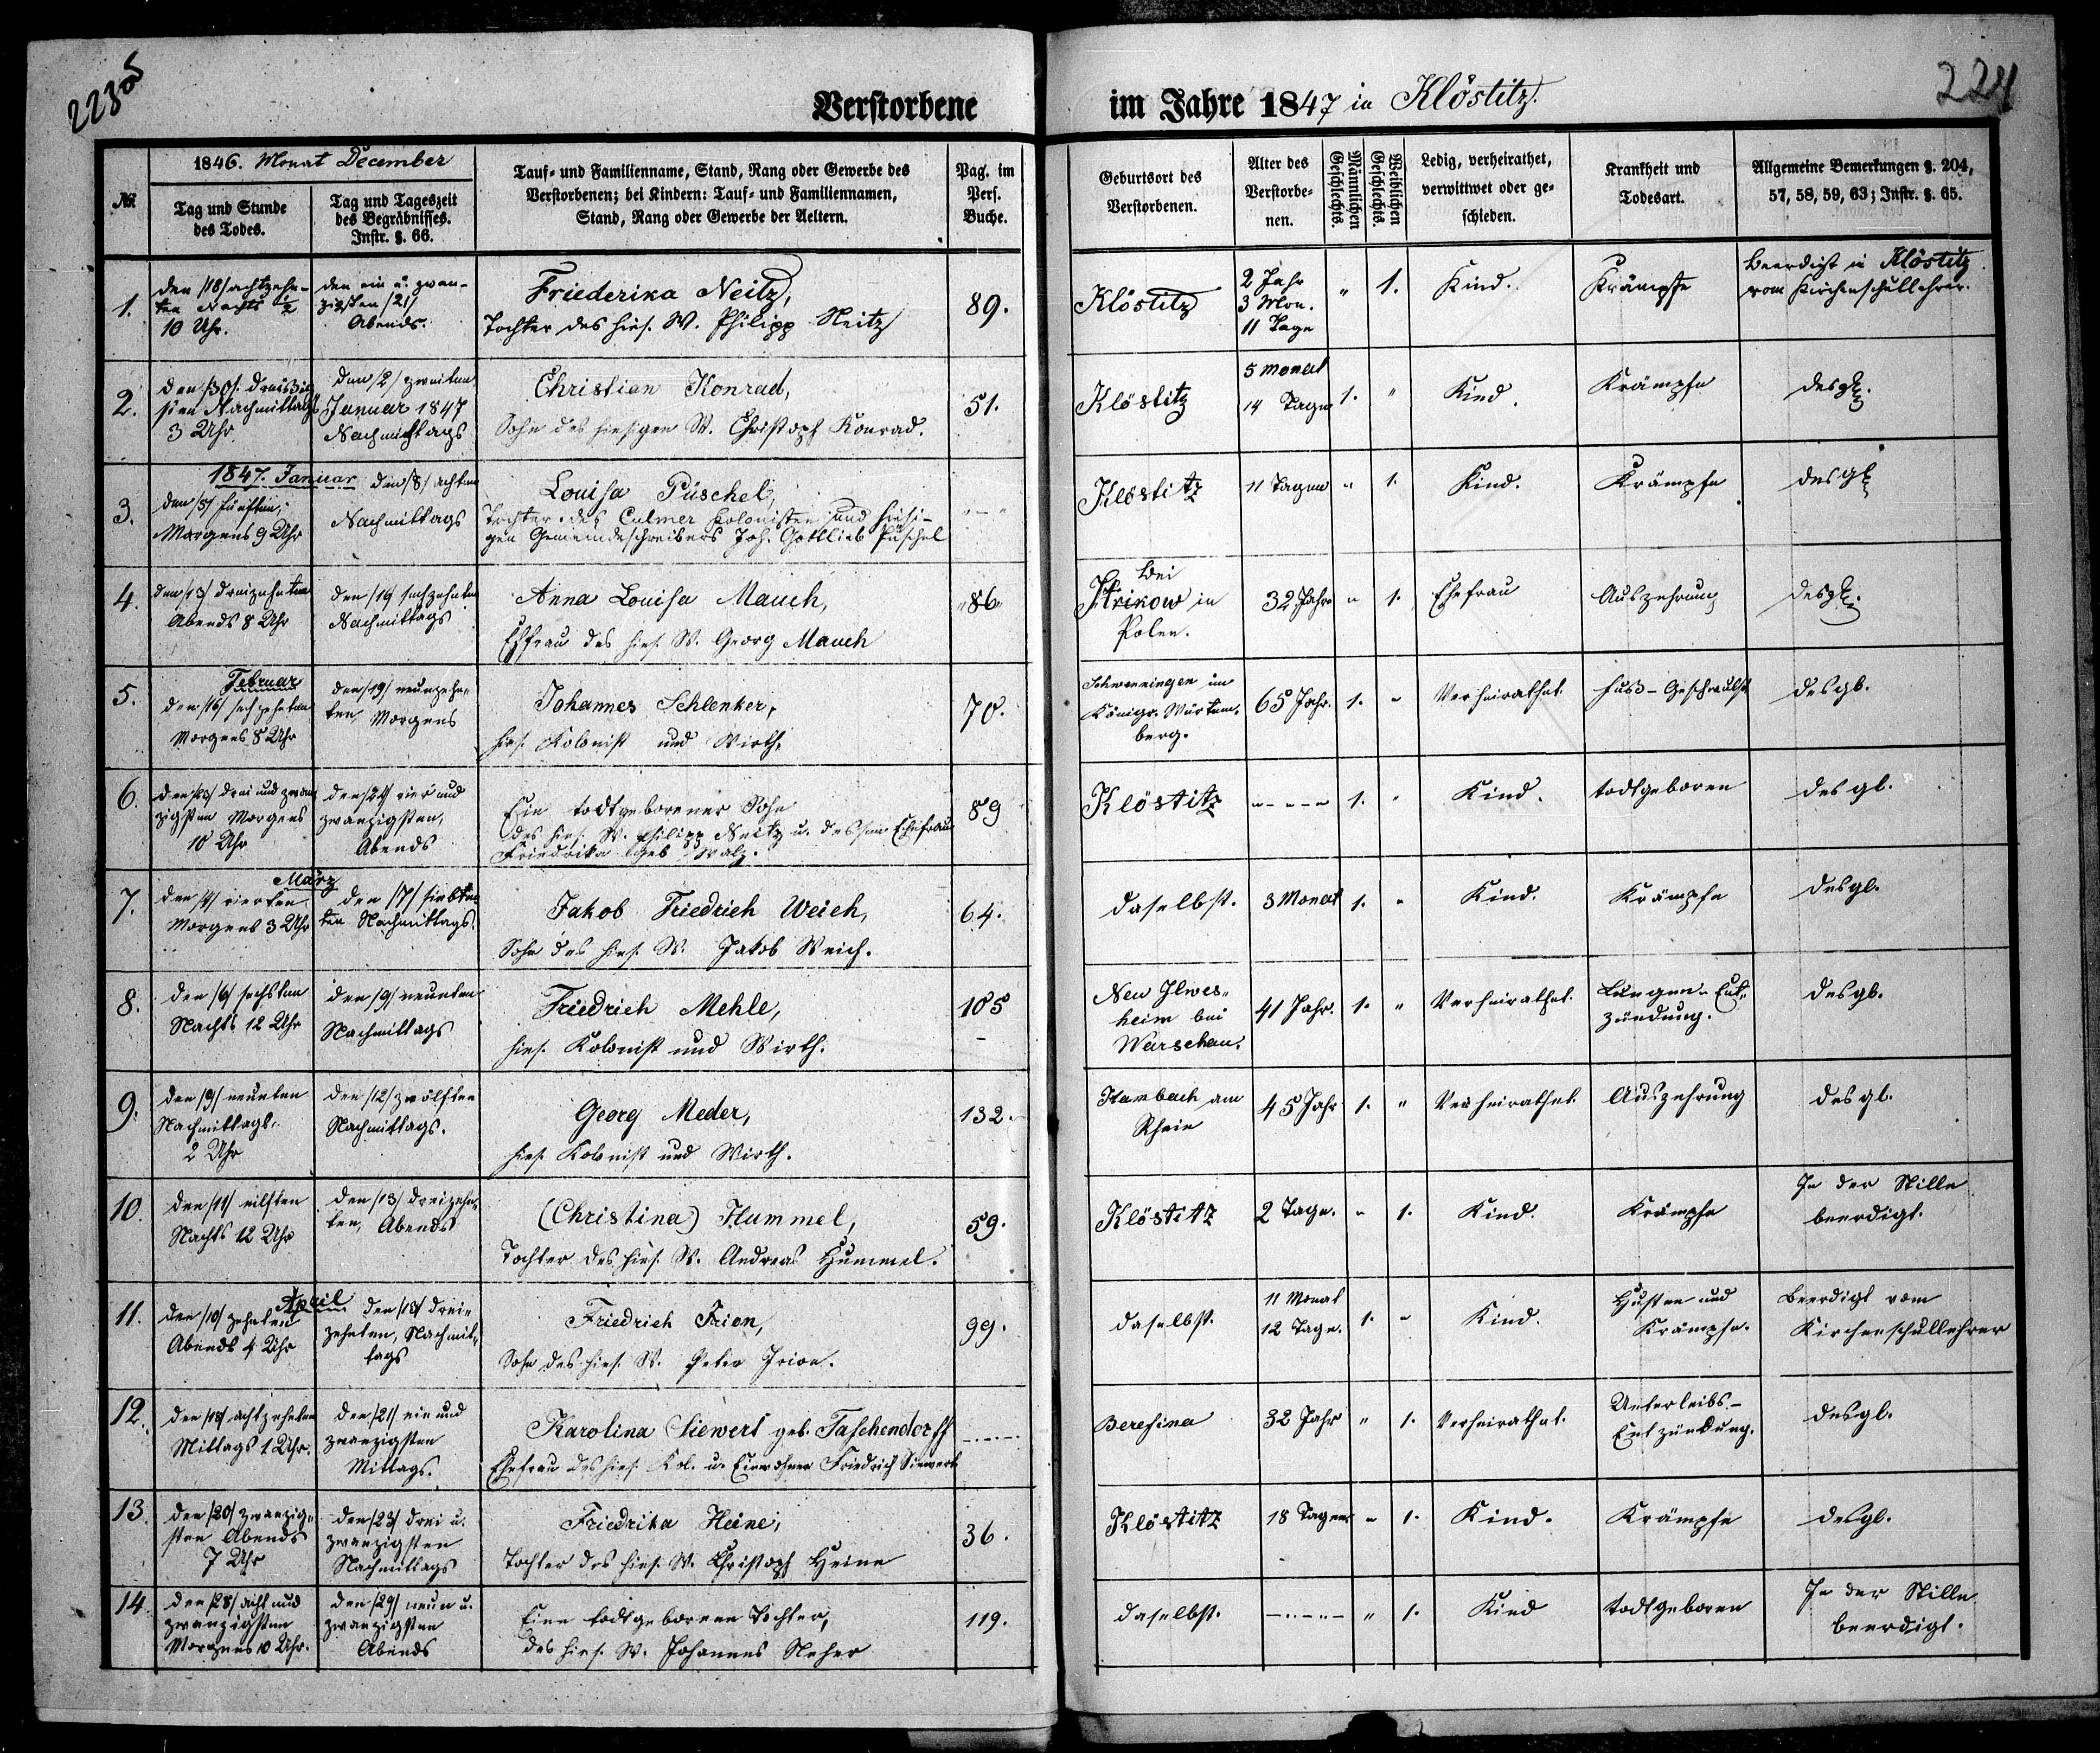 2235
224
Verstorbene im Jahre 1847 in Klöstitz.
1846. Monat December
№.
Tag und Stunde
des Todes.
Tag und Tageszeit
des Begräbnisses.
Instr. §. 66.
Tauf- und Familienname, Stand, Rang oder Gewerbe des
Verstorbenen; bei Kindern: Tauf- und Familiennamen,
Stand, Rang oder Gewerbe der Aeltern.
Pag. im
Pers.
Buche.
Geburtsort des
Verstorbenen.
Alter des
Verstorbe-
nen.
Männlichen
Geschlechts.
Weiblichen
Geschlechts.
Ledig, verheirathet,
verwittwet oder ge-
schieden.
Krankheit und
Todesart.
Allgemeine Bemerkungen §. 204,
57, 58, 59, 63; Instr. §. 65.
1.
den /18/ achtzehn-
ten Nachts ½
10 Uhr.
den ein u. zwan-
zigsten /21/
Abends.
Friederika Neitz,
Tochter des hies. W. Philipp Neitz
89.
Klöstitz
2 Jahr
3 Mon.
11 Tage
" 1.
Kind.
Krämpfe
Beerdigt in Klöstitz
vom Kirchenschullehrer.
2.
den /30/ dreißig-
sten Nachmittags
3 Uhr
den /2/ zweiten
Januar 1847
Nachmittags
Christian Konrad,
Sohn des hiesigen W. Christoph Konrad.
51.
Klöstitz
5 Monat
14 Tage
1. "
Kind.
Krämpfe
desgl.
1847. Januar
3.
den /5/ fünften,
Morgens 9 Uhr
den /8/ achten
Nachmittags
Louisa Püschel,
Tochter des Culmer Kolonisten und hiesi-
gen Gemeindeschreibers Joh. Gottlieb Püschel
" – "
Klöstitz
11 Tagen
" 1.
Kind.
Krämpfe
desgl
4.
den /13/ dreizehnten
Abends 8 Uhr
den /16/ sechzehnten
Nachmittags
Anna Louisa Mauch,
Ehfrau des hies. W. Georg Mauch
"86"
bei
Strikow in
Polen.
32 Jahr
" 1.
Ehefrau
Auszehrung
desgl.
Februar
5.
den /16/ sechzehnten
Morgens 8 Uhr
den /19/ neunzehn-
ten Morgens
Johannes Schlenker,
hies. Kolonist und Wirth.
70.
Schwenningen im
Königr. Würtem-
berg.
65 Jahr.
1. "
Verheirathet.
Fuß-Geschwulst
desgl.
6.
den /23/ drei und zwan
zigsten Morgens
10 Uhr
den /24/ vier und
zwanzigsten,
Abends
Ein todtgeborener Sohn
des hies. W. Philipp Neitz u. dessen Ehefrau
Friedrika geb. Walz.
89
Klöstitz
" - - - "
1. "
Kind.
todtgeboren
desgl.
März
7.
den /4/ vierten
Morgens 3 Uhr
den /7/ siebten
ten Nachmittags.
Jakob Friedrich Weich,
Sohn des hies. W. Jakob Weich.
64.
daselbst.
3 Monat
1. "
Kind.
Krämpfe
desgl.
8.
den /6/ sechsten
Nachts 12 Uhr
den /9/ neunten
Nachmittags
Friedrich Mehle,
hies. Kolonist und Wirth.
105
Neu Ilwes-
heim bei
Warschau.
41 Jahr.
1. "
Verheirathet.
Lungen-Ent-
zündung.
desgl.
9.
den /9/ neunten
Nachmittags.
2 Uhr
den /12/ zwölften
Nachmittags.
Georg Meder,
hies. Kolonist und Wirth.
132.
Hambach am
Rhein
45 Jahr
1. "
Verheirathet.
Auszehrung
desgl.
10.
den /11/ eilften
Nachts 12 Uhr
den /13/ dreizehn-
ten, Abends
(Christina) Hummel,
Tochter des hies. W. Andreas Hummel.
59.
Klöstitz
2 Tage.
" 1.
Kind.
Krämpfe
In der Stille
beerdigt.
April
11.
den /10/ zehnten
Abends 4 Uhr
den /13/ drei-
zehnten, Nachmit-
tags
Friedrich Irion,
Sohn des hies. W. Peter Irion.
99.
daselbst.
11 Monat
12 Tage.
1. "
Kind.
Husten und
Krämpfe.
Beerdigt vom
Kirchenschullehrer
12.
den /18/ achtzehnten
Mittags 1 Uhr.
den /21/ ein und
zwanzigsten
Mittags.
Karolina Siewert geb. Taschendorff
Ehefrau des hies. Kol. u. Einwohner Friedrich Siewert
- - - -
Beresina
32 Jahr
" 1.
Verheirathet.
Unterleibs-
Entzündung.
desgl.
13.
den /20/ zwanzig-
sten Abends
7 Uhr
den /23/ drei u.
zwanzigsten
Nachmittags
Friedrika Heine,
Tochter des hies. W. Christoph Heine
36.
Klöstitz
18 Tagen
" 1.
Kind.
Krämpfe
desgl.
14
den /28/ acht und
zwanzigsten
Morgens 10 Uhr.
den /29/ neun u.
zwanzigsten
Abends
Eine todtgeborene Tochter,
des hies. W. Johannes Neher
119.
daselbst.
- - - -
" 1.
Kind
todtgeboren
In der Stille
beerdigt.